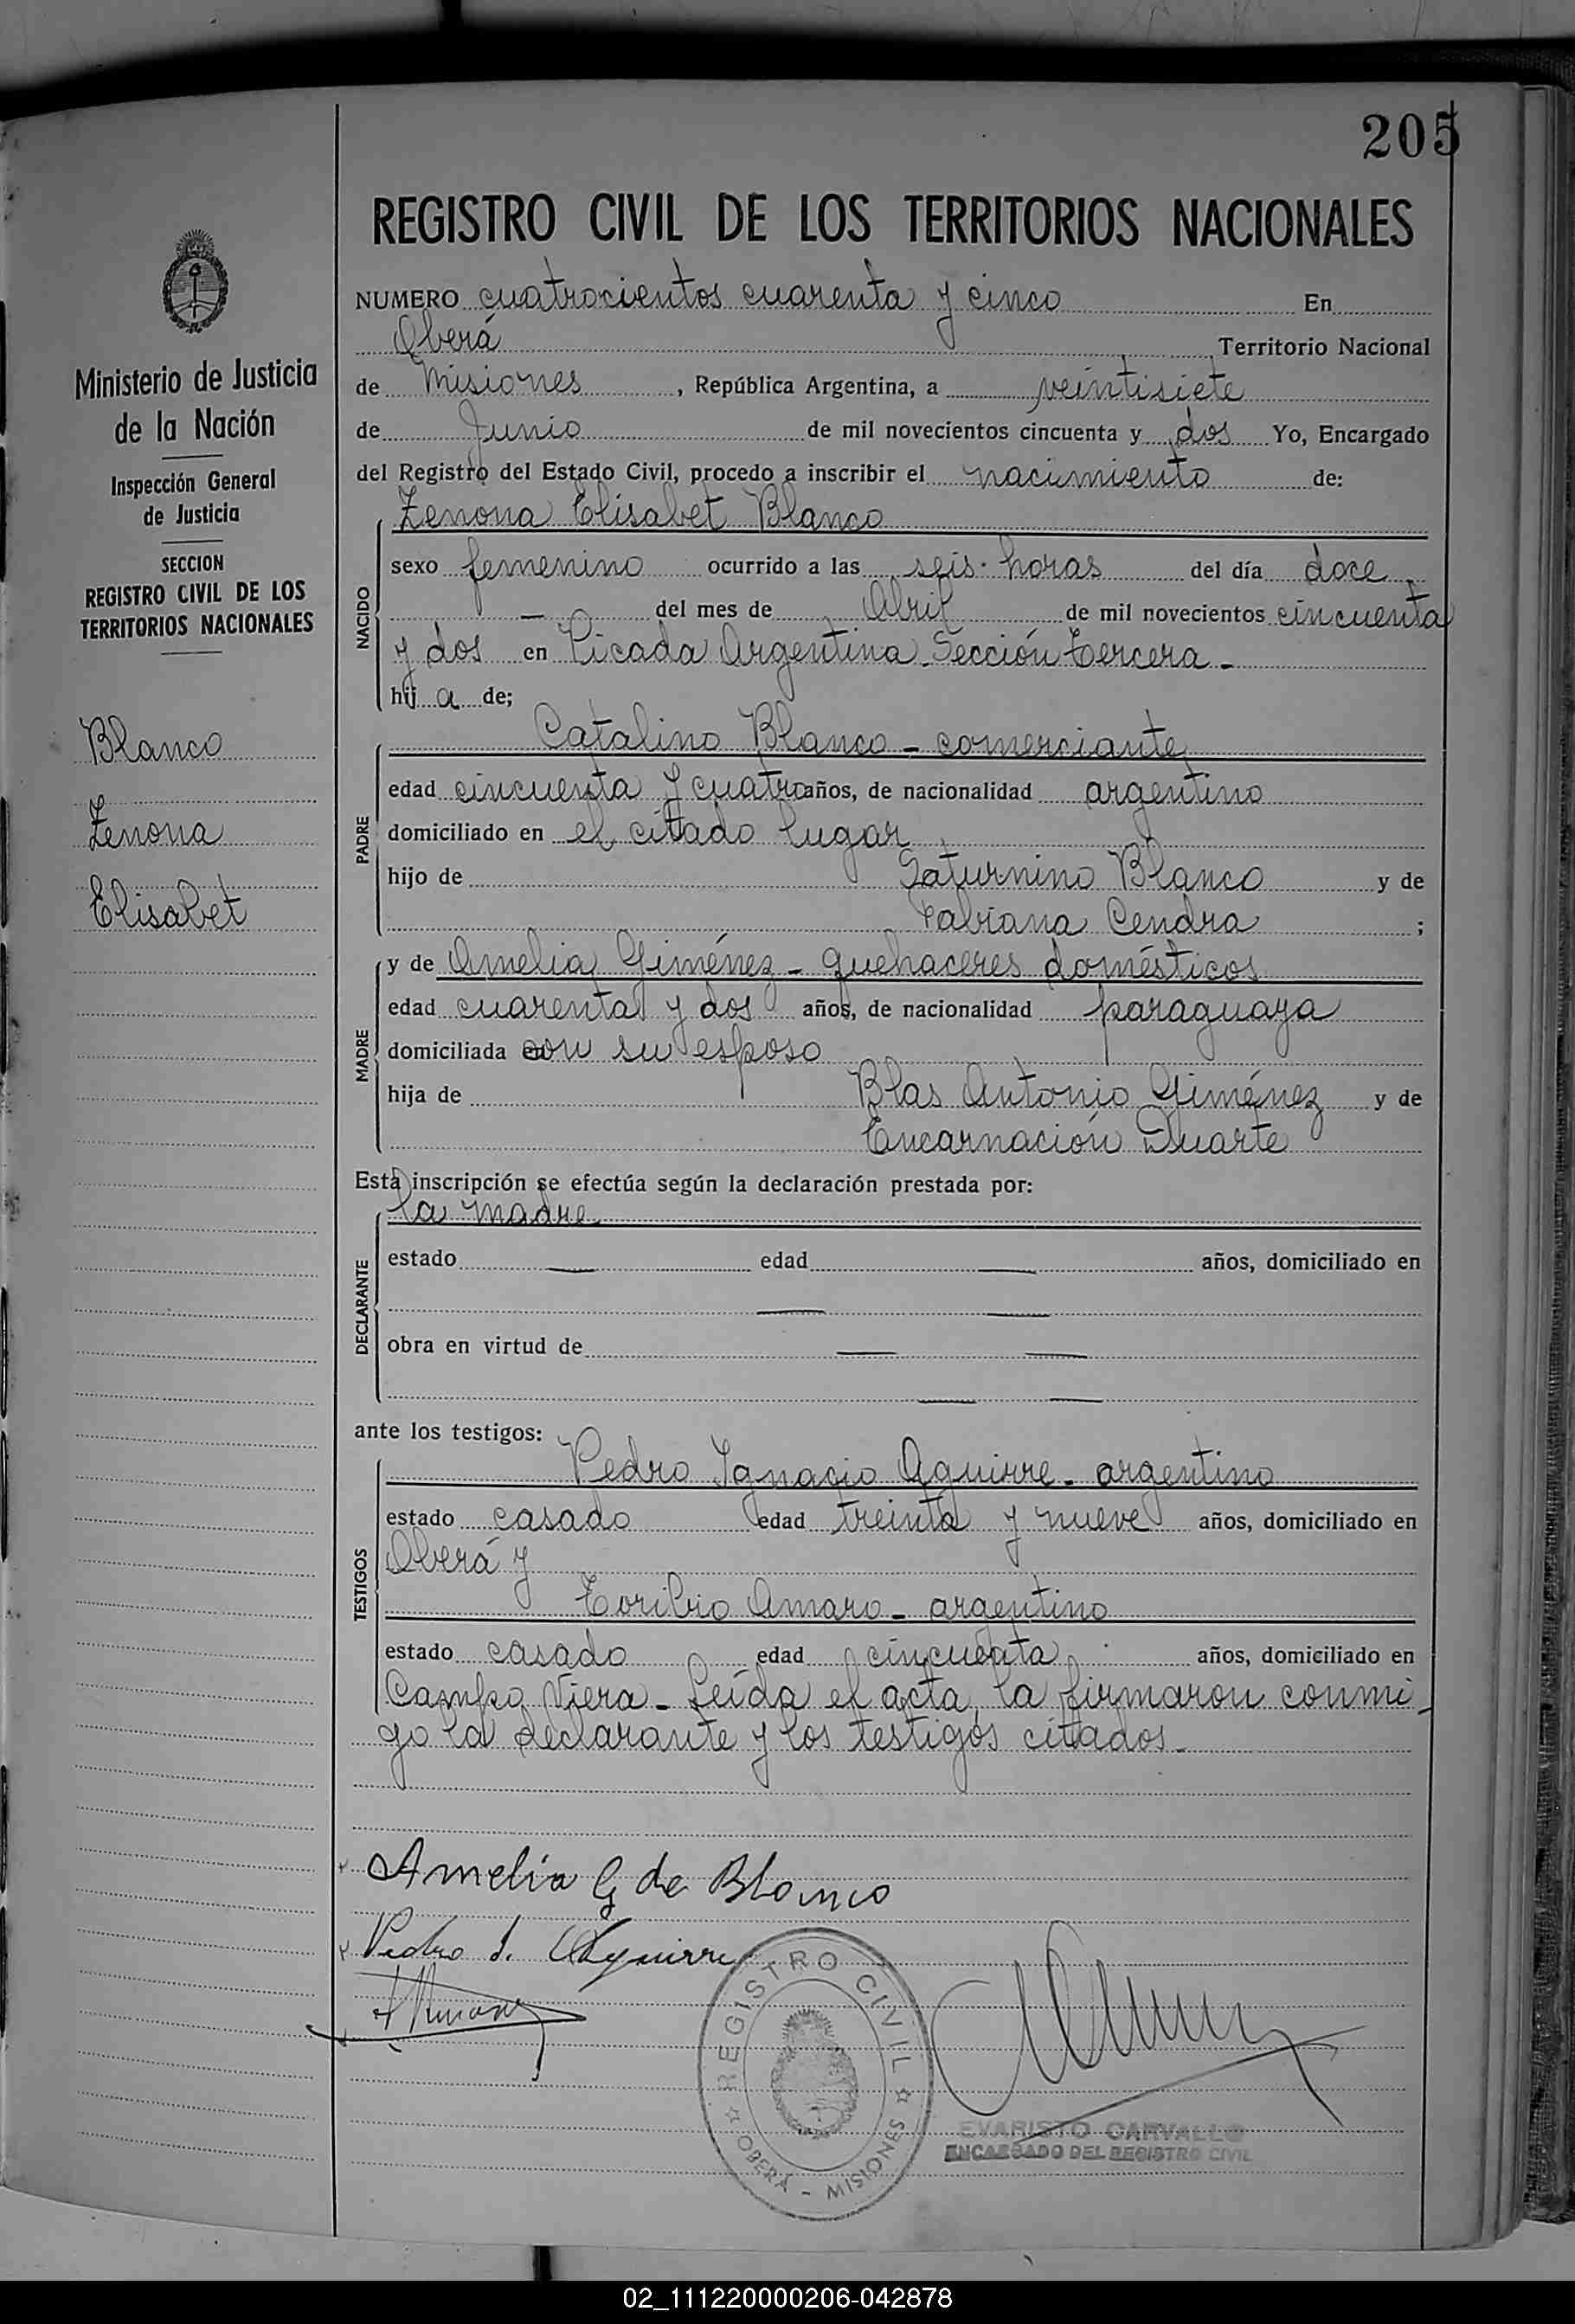 205
REGISTRO CIVIL DE LOS TERRITORIOS NACIONALES
Ministerio de Justicia
de la Nación
Inspección General
de Justicia
SECCION
REGISTRO CIVIL DE LOS
TERRITORIOS NACIONALES
Blanco
Zenona
Elisabet
NUMERO cuatrocientos cuarenta y cinco En
Oberá Territorio Nacional
de Misiones, República Argentina, a veintisiete
de Junio de mil novecientos cincuenta y dos Yo, Encargado
del Registro del Estado Civil, procedo a inscribir el nacimiento de:
NACIDO
Zenona Elisabet Blanco
sexo femenino ocurrido a las seis horas del día doce
— del mes de Abril de mil novecientos cincuenta
y dos en Picada Argentina - Sección Tercera -
hij a de;
PADRE
Catalino Blanco - comerciante
edad cincuenta y cuatro años, de nacionalidad argentino
domiciliado en el citado lugar
hijo de Saturnino Blanco y de
Fabiana Cendra ;
MADRE
y de Amelia Giménez - quehaceres domésticos
edad cuarenta y dos años, de nacionalidad paraguaya
domiciliada con su esposo
hija de Blas Antonio Giménez y de
Encarnación Duarte
Esta inscripción se efectúa según la declaración prestada por:
DECLARANTE
la madre
estado — edad — años, domiciliado en
— —
obra en virtud de — —
— —
ante los testigos:
TESTIGOS
Pedro Ignacio Aguirre - argentino
estado casado edad treinta y nueve años, domiciliado en
Oberá y
Toribio Amaro - argentino
estado casado edad cincuenta años, domiciliado en
Campo Viera - Leída el acta, la firmaron conmi-
go la declarante y los testigos citados -
Amelia G de Blanco
Pedro I. Aguirre
REGISTRO CIVIL
OBERÁ - MISIONES
EVARISTO CARVALLO
ENCARGADO DEL REGISTRO CIVIL
02_111220000206-042878